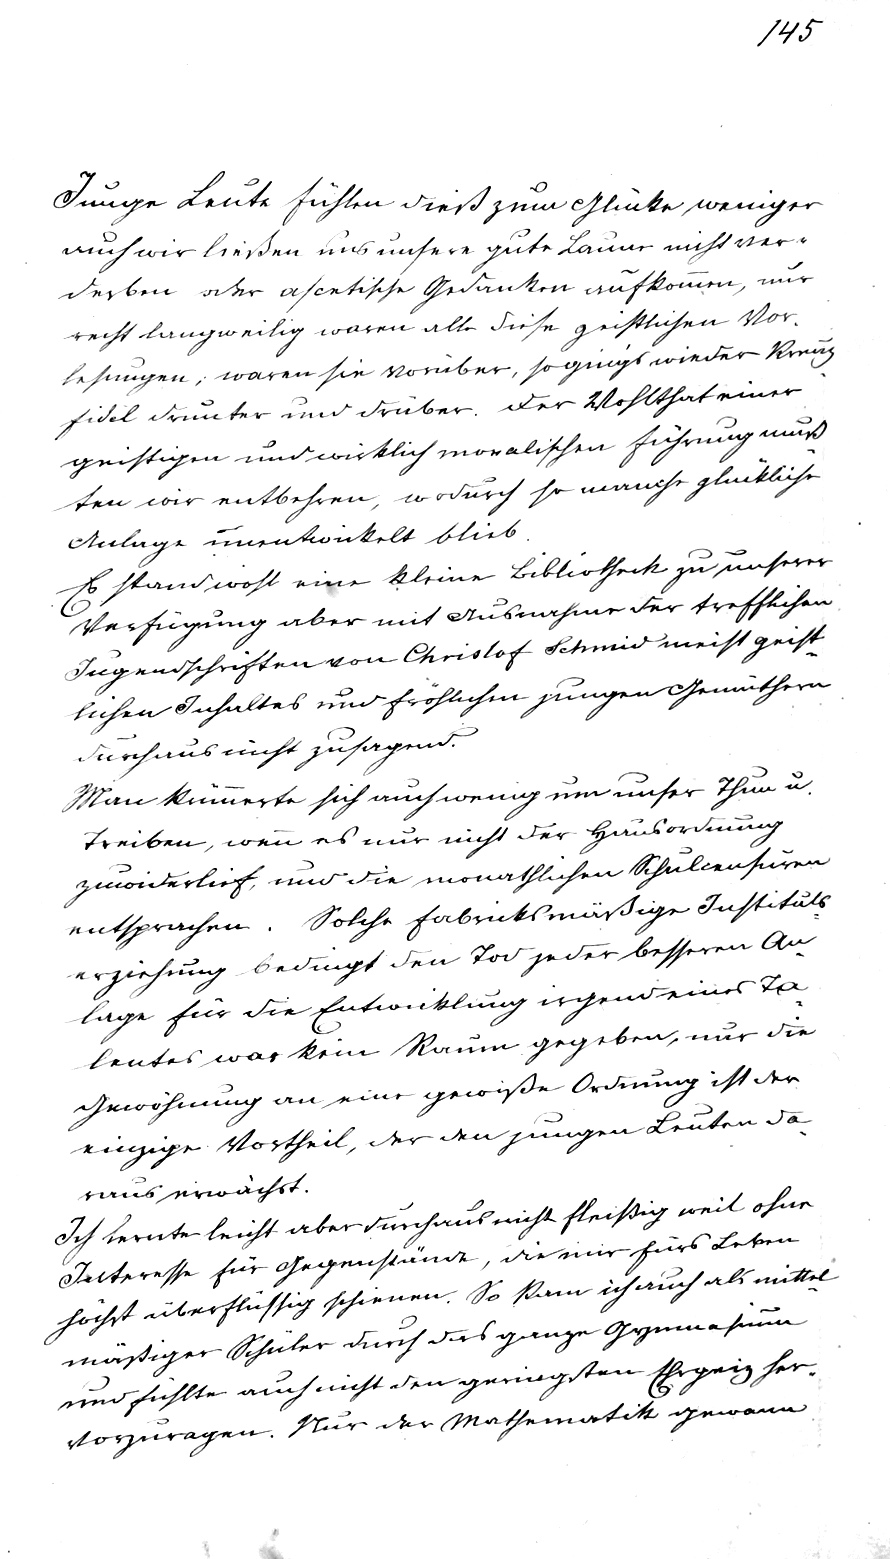 145
Junge Leute fühlen dieß zum Glücke weniger
auch wir ließen uns unsere gute Laune nicht ver-
derben oder ascetische Gedanken aufkom̄en, nur
recht langweilig waren alle diese geistlichen Vor-
lesungen; waren sie vorüber, so ging's wieder kreuz
fidel drunter und drüber. Der Wohlthat einer
geistigen und wirklich moralischen Führung muß
ten wir entbehren, wodurch so manche glückliche
Anlage unentwickelt blieb.
Es stand wohl eine kleine Bibliotheck zu unserer
Verfügung aber mit Ausnahme der trefflichen
Jugendschriften von Christof Schmid meist geist-
lichen Inhaltes und fröhlichen jungen Gemüthern
durchaus nicht zusagend.
Man küm̄erte sich auch wenig um unser Thun u.
Treiben, wen̄ es nur nicht der Hausordnung
zuwiderlief, und die monathlichen Schulcensuren
entsprachen. Solche fabricksmäßige Instituts-
erziehung bedingt den Tod jeder besseren An-
lage für die Entwicklung irgend eines Ta-
lentes war kein Raum gegeben, nur die
Gewöhnung an eine gewiße Ordnung ist der
einzige Vortheil, der den jungen Leuten da-
raus erwächst.
Ich lernte leicht aber durchaus nicht fleißig weil ohne
Interesse für Gegenstände, die mir fürs Leben
höchst überflüssig schienen. So kam ich auch als mittel-
mäßiger Schüler durch das ganze Gymnasium
und fühlte auch nicht den geringsten Ehrgeiz her-
vorzuragen. Nur der Mathematik gewann